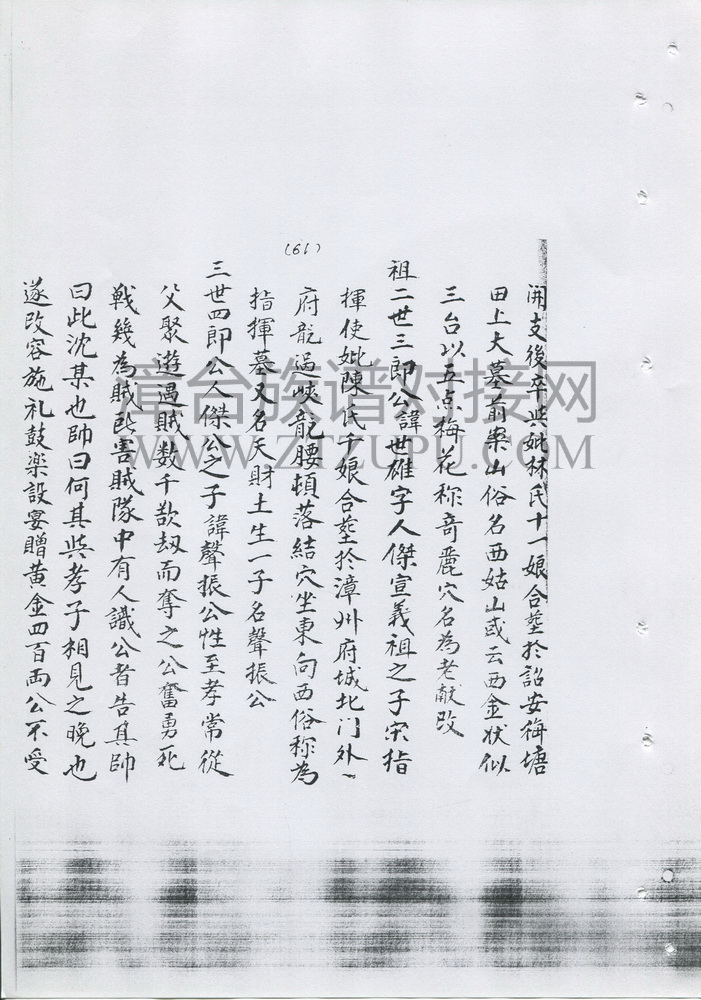 (61)
開支後卒与妣林氏十一娘合塟扵詔安梅塘
田上大墓前案山俗名西姑山或云西金状似
三台以五点梅花称竒麗穴名為老献改
祖二世三郎公諱世雄字人傑宣義祖之子宋指
揮使妣陳氏千娘合塟扵漳州府城北门外
府龍過峽龍腰頓落結穴坐東向西俗称為
指揮墓又名天財土生一子名聲振公
三世四郎公人傑公之子諱聲振公性至孝常從
父聚遊遇賊数千欲刼而奪之公奮勇死
戦幾為賊所害賊隊中有人識公者告其帥
曰此沈某也帥曰何其与孝子相見之晚也
遂改容施礼鼓楽設宴贈黄金四百両公不受
漳台族谱对接网
WWW.ZTZUPU.COM